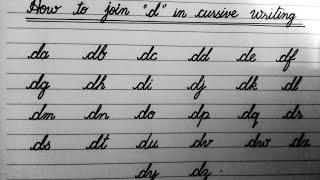 How to join "d" in cursive writing
da db dc dd de df
dg dh di dj dk dl
dm dn do dp dq dr
ds dt du dv dw dx
dy dz.